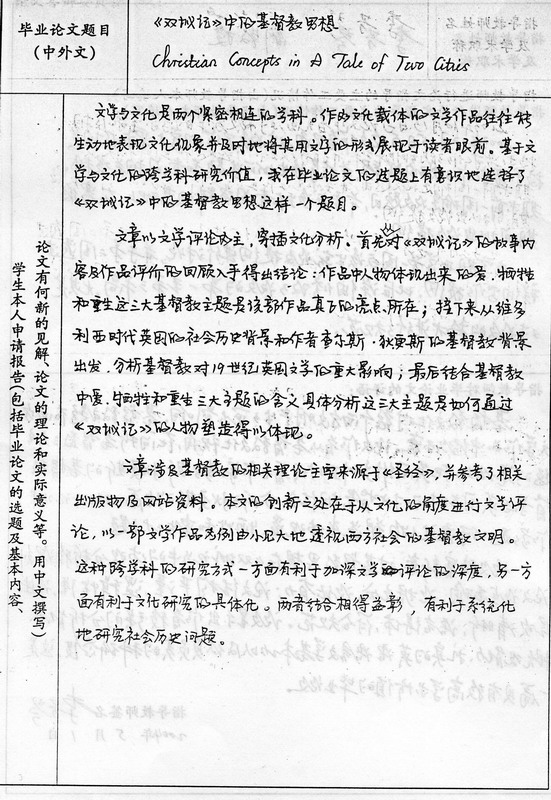 毕业论文题目
(中外文)
《双城记》中的基督教思想
Christian Concepts in A Tale of Two Cities
学生本人申请报告(包括毕业论文的选题及基本内容、
论文有何新的见解、论文的理论和实际意义等。用中文撰写)
文学与文化是两个紧密相连的学科。作为文化载体的文学作品往往能
生动地表现文化现象并及时地将其用文字的形式展现于读者眼前。基于文
学与文化的跨学科研究价值,我在毕业论文的选题上有意识地选择了
《双城记》中的基督教思想这样一个题目。
文章以文学评论为主,穿插文化分析。首先以对《双城记》的故事内
容及作品评价的回顾入手得出结论:作品中人物体现出来的爱、牺牲
和重生这三大基督教主题是该部作品真正的亮点所在;接下来从维多
利亚时代英国的社会历史背景和作者查尔斯·狄更斯的基督教背景
出发,分析基督教对19世纪英国文学的重大影响;最后结合基督教
中爱、牺牲和重生三大主题的含义具体分析这三大主题是如何通过
《双城记》的人物塑造得以体现。
文章涉及基督教的相关理论主要来源于《圣经》,并参考了相关
出版物及网站资料。本文的创新之处在于从文化的角度进行文学评
论,以一部文学作品为例由小见大地透视西方社会的基督教文明。
这种跨学科的研究方式一方面有利于加深文学评论的深度,另一方
面有利于文化研究的具体化。两者结合相得益彰,有利于系统化
地研究社会历史问题。